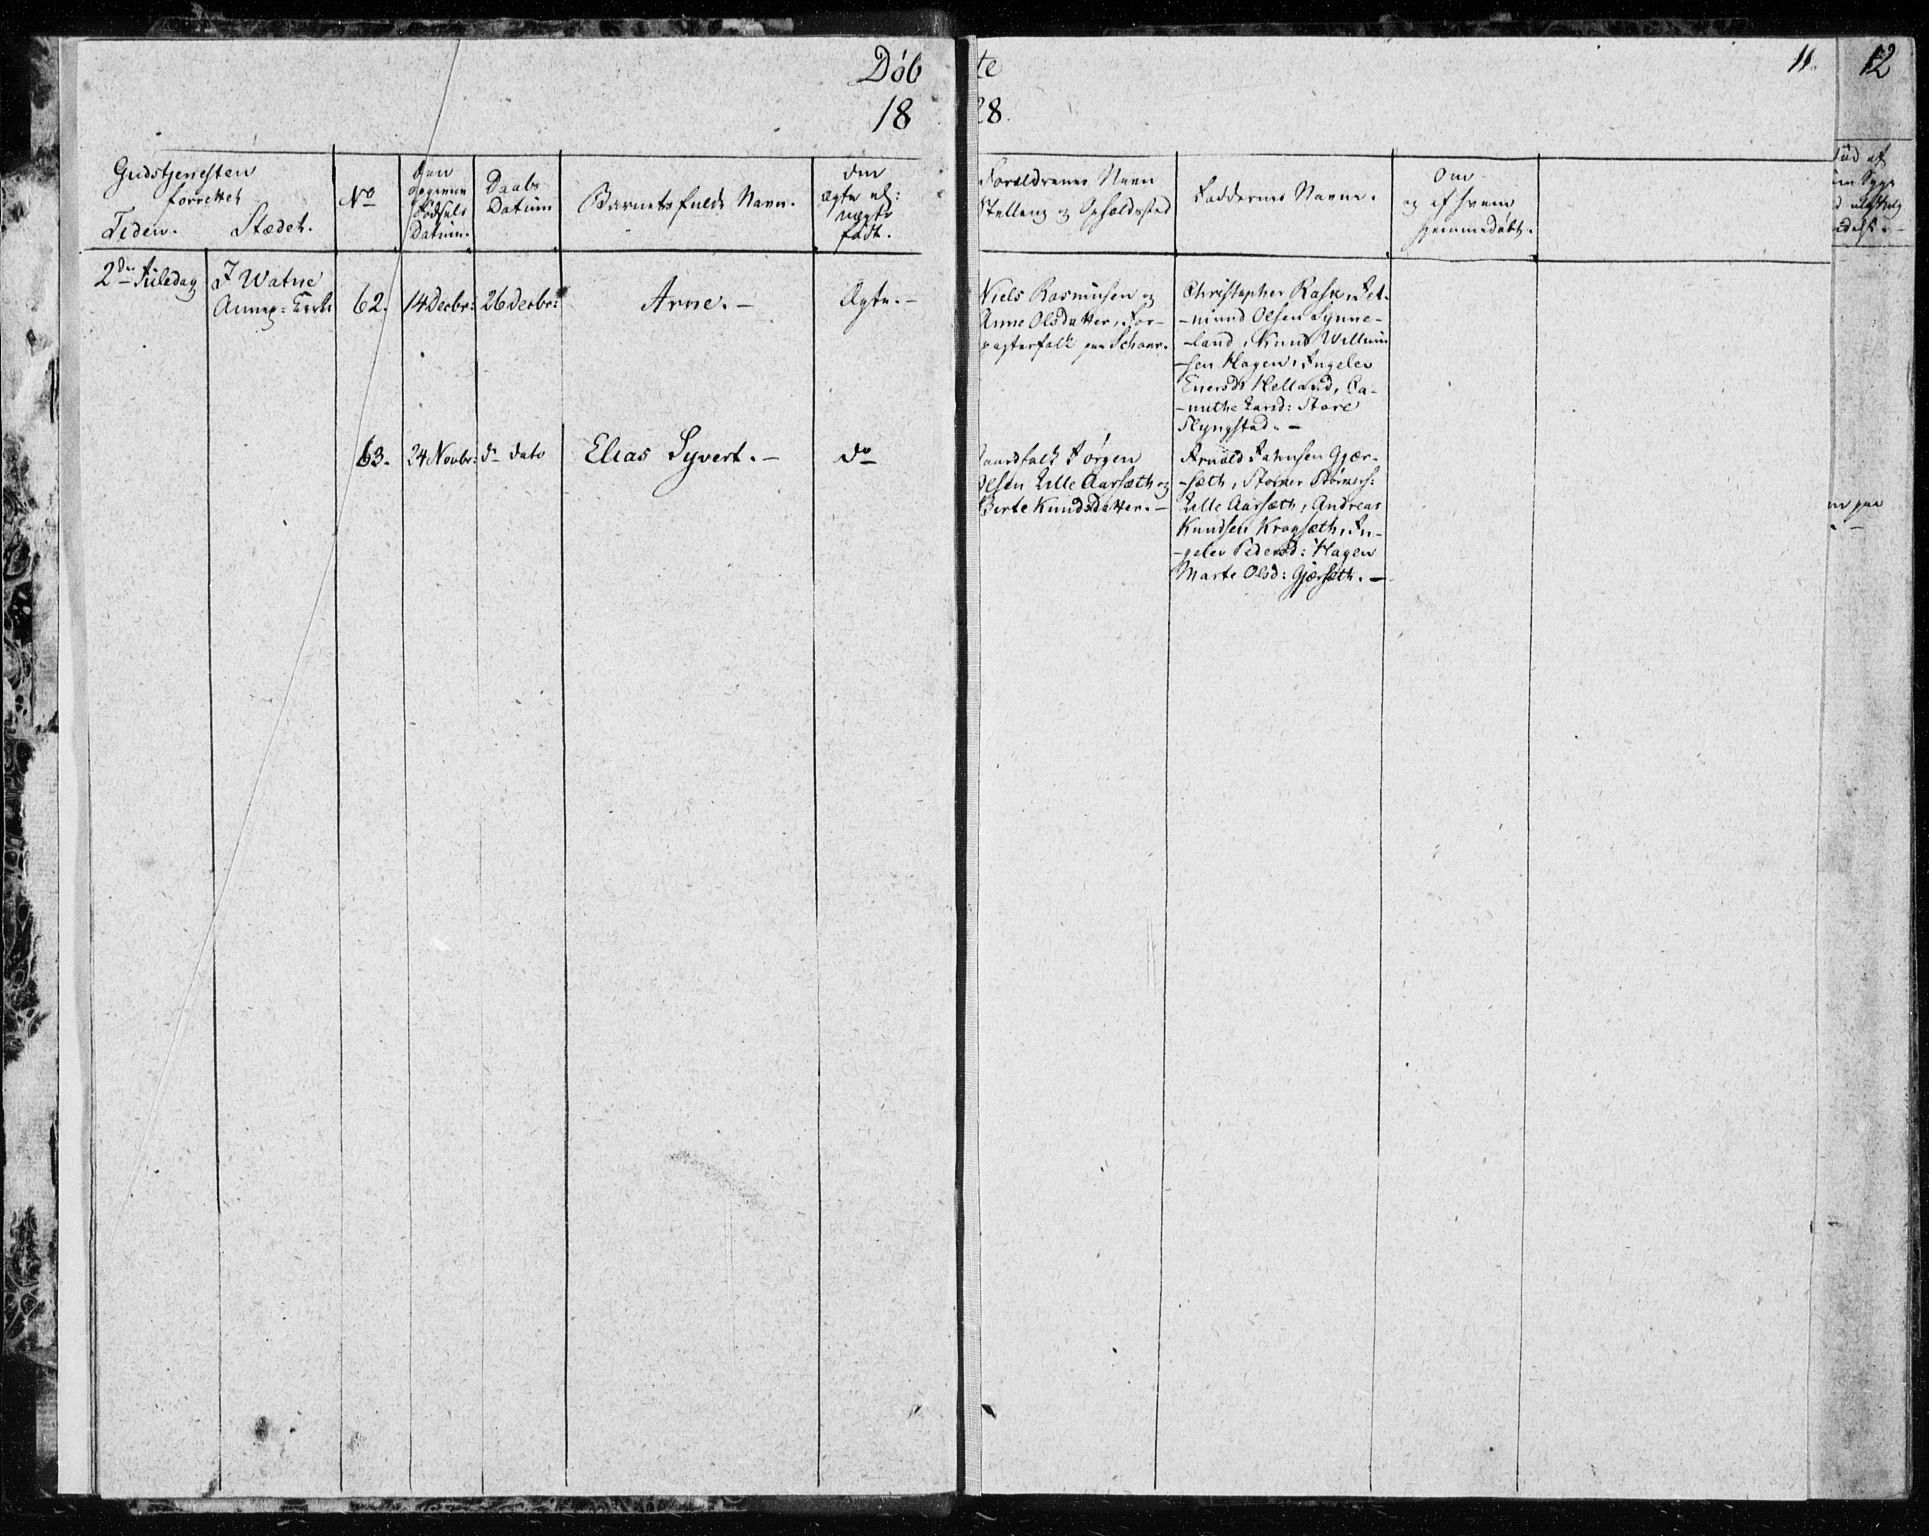 Døb
18
te
28.
11.
12
Gudstjenesten
forrettet
Tiden. Stædet.
No
Den
opgivne
Fødsels
Datum.
Daabs
Datum
Barnets fulde Navn.
Om
ægte el:
uægte
født.
Forældrenes Navn
Stilling og Opholdssted
Faddernes Navne.
Om
og af hvem
hjemmedøbt.
2den Juledag
I Watne
Annex: Kirke
62.
14 Decbr:
26 Decbr:
Arne. –
Ægte. –
Niels Rasmusen og
Anne Olsdatter, For-
pagterfolk paa
Christopher Rask, Jet-
-mund Olsen Synne-
-land, Knud Willum
-sen Hagen, Ingelev
Helland, Ca-
-nuthe Store
Slyngstad. –
63.
24 Novbr:
do dato
Elias Syvert. –
do
Gaardfolk Jørgen
Olsen Lille Aarsæth og
Berte Knudsdatter. –
Arnold Johnsen Gjær-
-sæth,
Lille Aarsæth, Andreas
Knudsen Krogsæth, In-
-gelev Pedersd: Hagen
Marte Olsd: Gjærsæth. –
paa